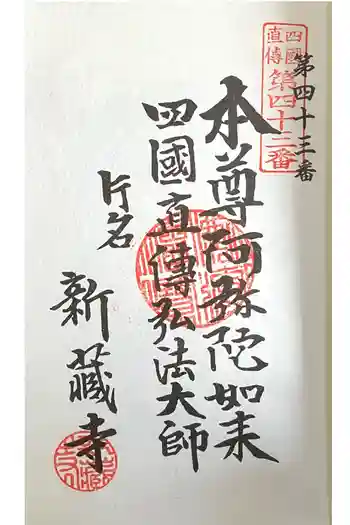 第四十三番
四國
直傳
第四十三番
本尊阿弥陀如来
四國直傳弘法大師
片名
新藏寺